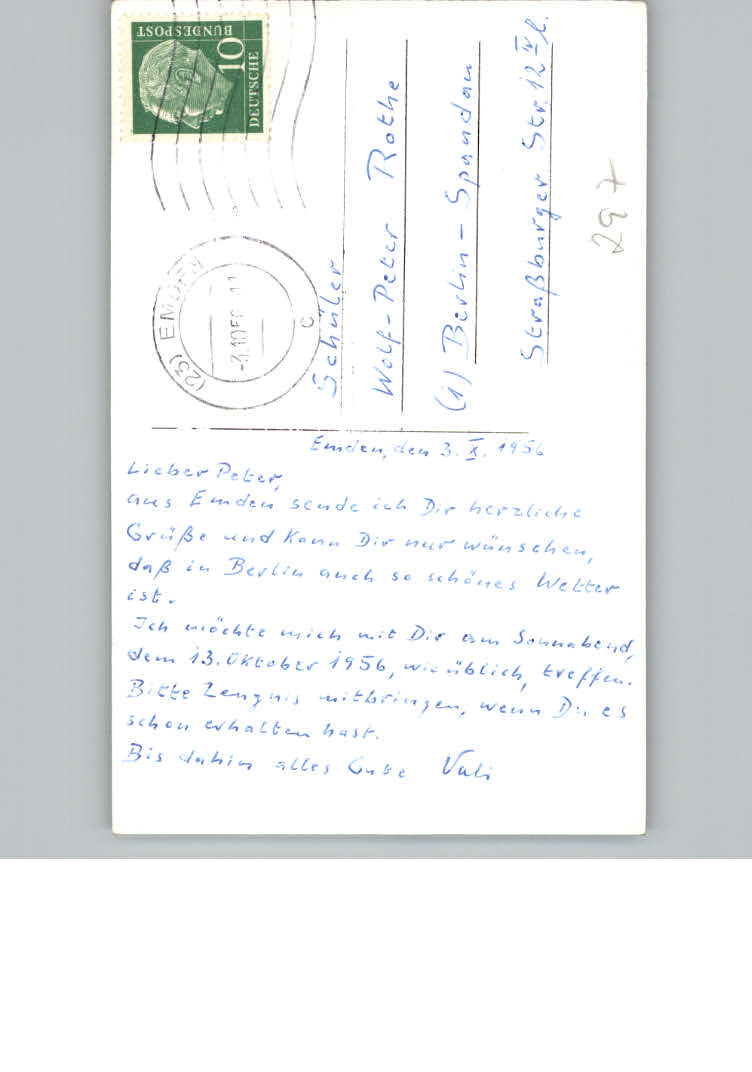 DEUTSCHE
BUNDESPOST
10
(23) EMDEN
-3.10.56 11
c
Schüler
Wolf-Peter Rothe
(1) Berlin-Spandau
Straßburger Str. 12 IV l.
297
Emden, den 3. X. 1956
Lieber Peter,
aus Emden sende ich Dir herzliche
Grüße und kann Dir nur wünschen,
daß in Berlin auch so schönes Wetter
ist.
Ich möchte mich mit Dir am Sonnabend,
dem 13. Oktober 1956, wie üblich, treffen.
Bitte Zeugnis mitbringen, wenn Du es
schon erhalten hast.
Bis dahin alles Gute Vati